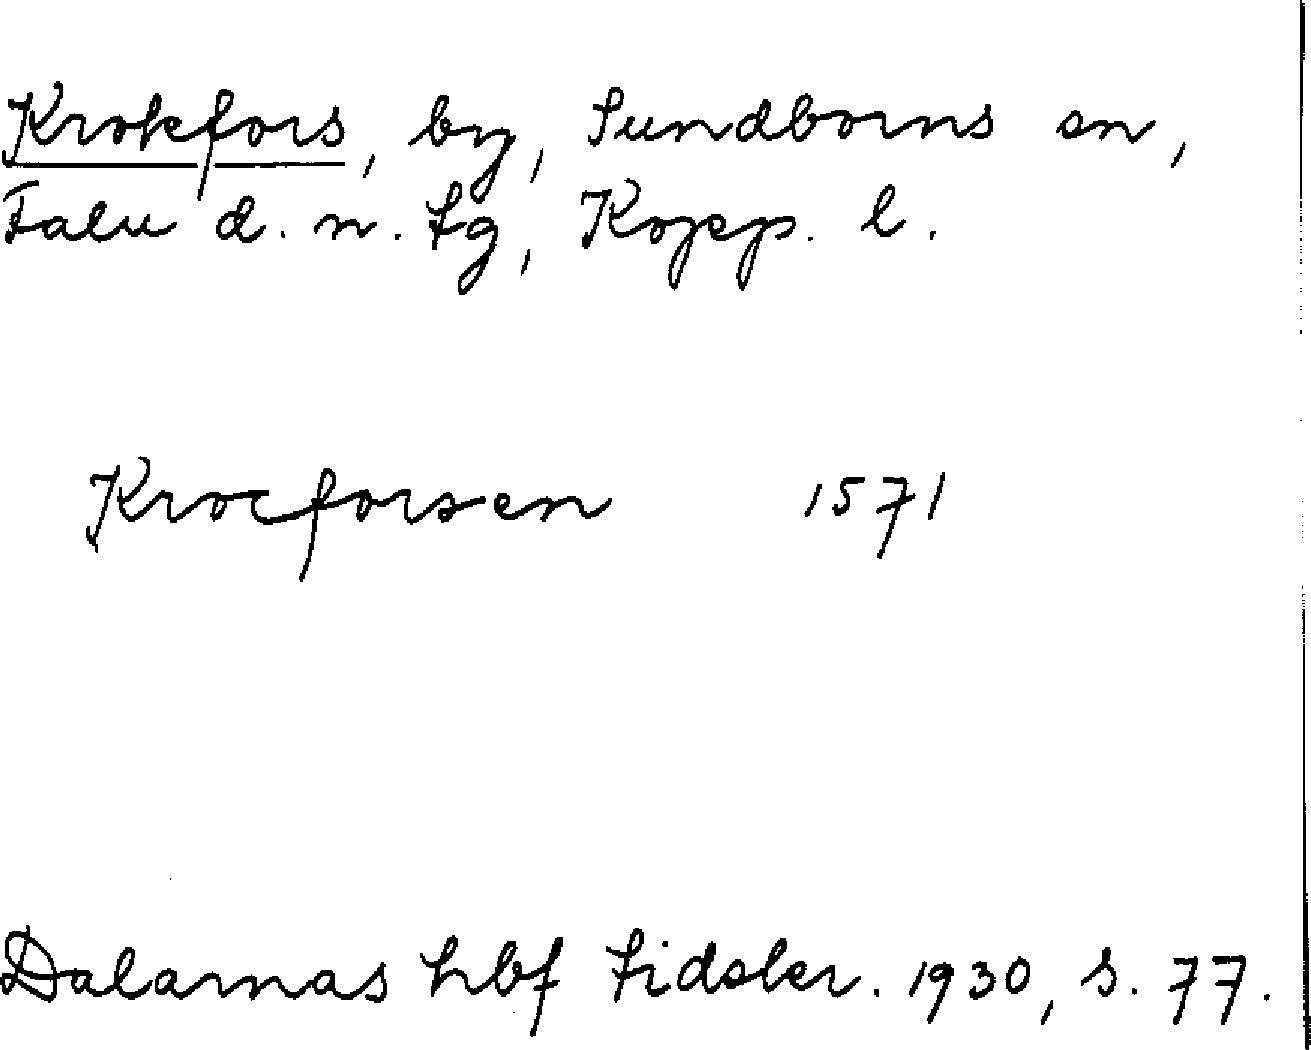 Krokfors, by, Sundborns sn,
Falu d. n. tg, Kopp. l.
Krocforsen 1571
Dalarnas hbf tidskr. 1930, s. 77.